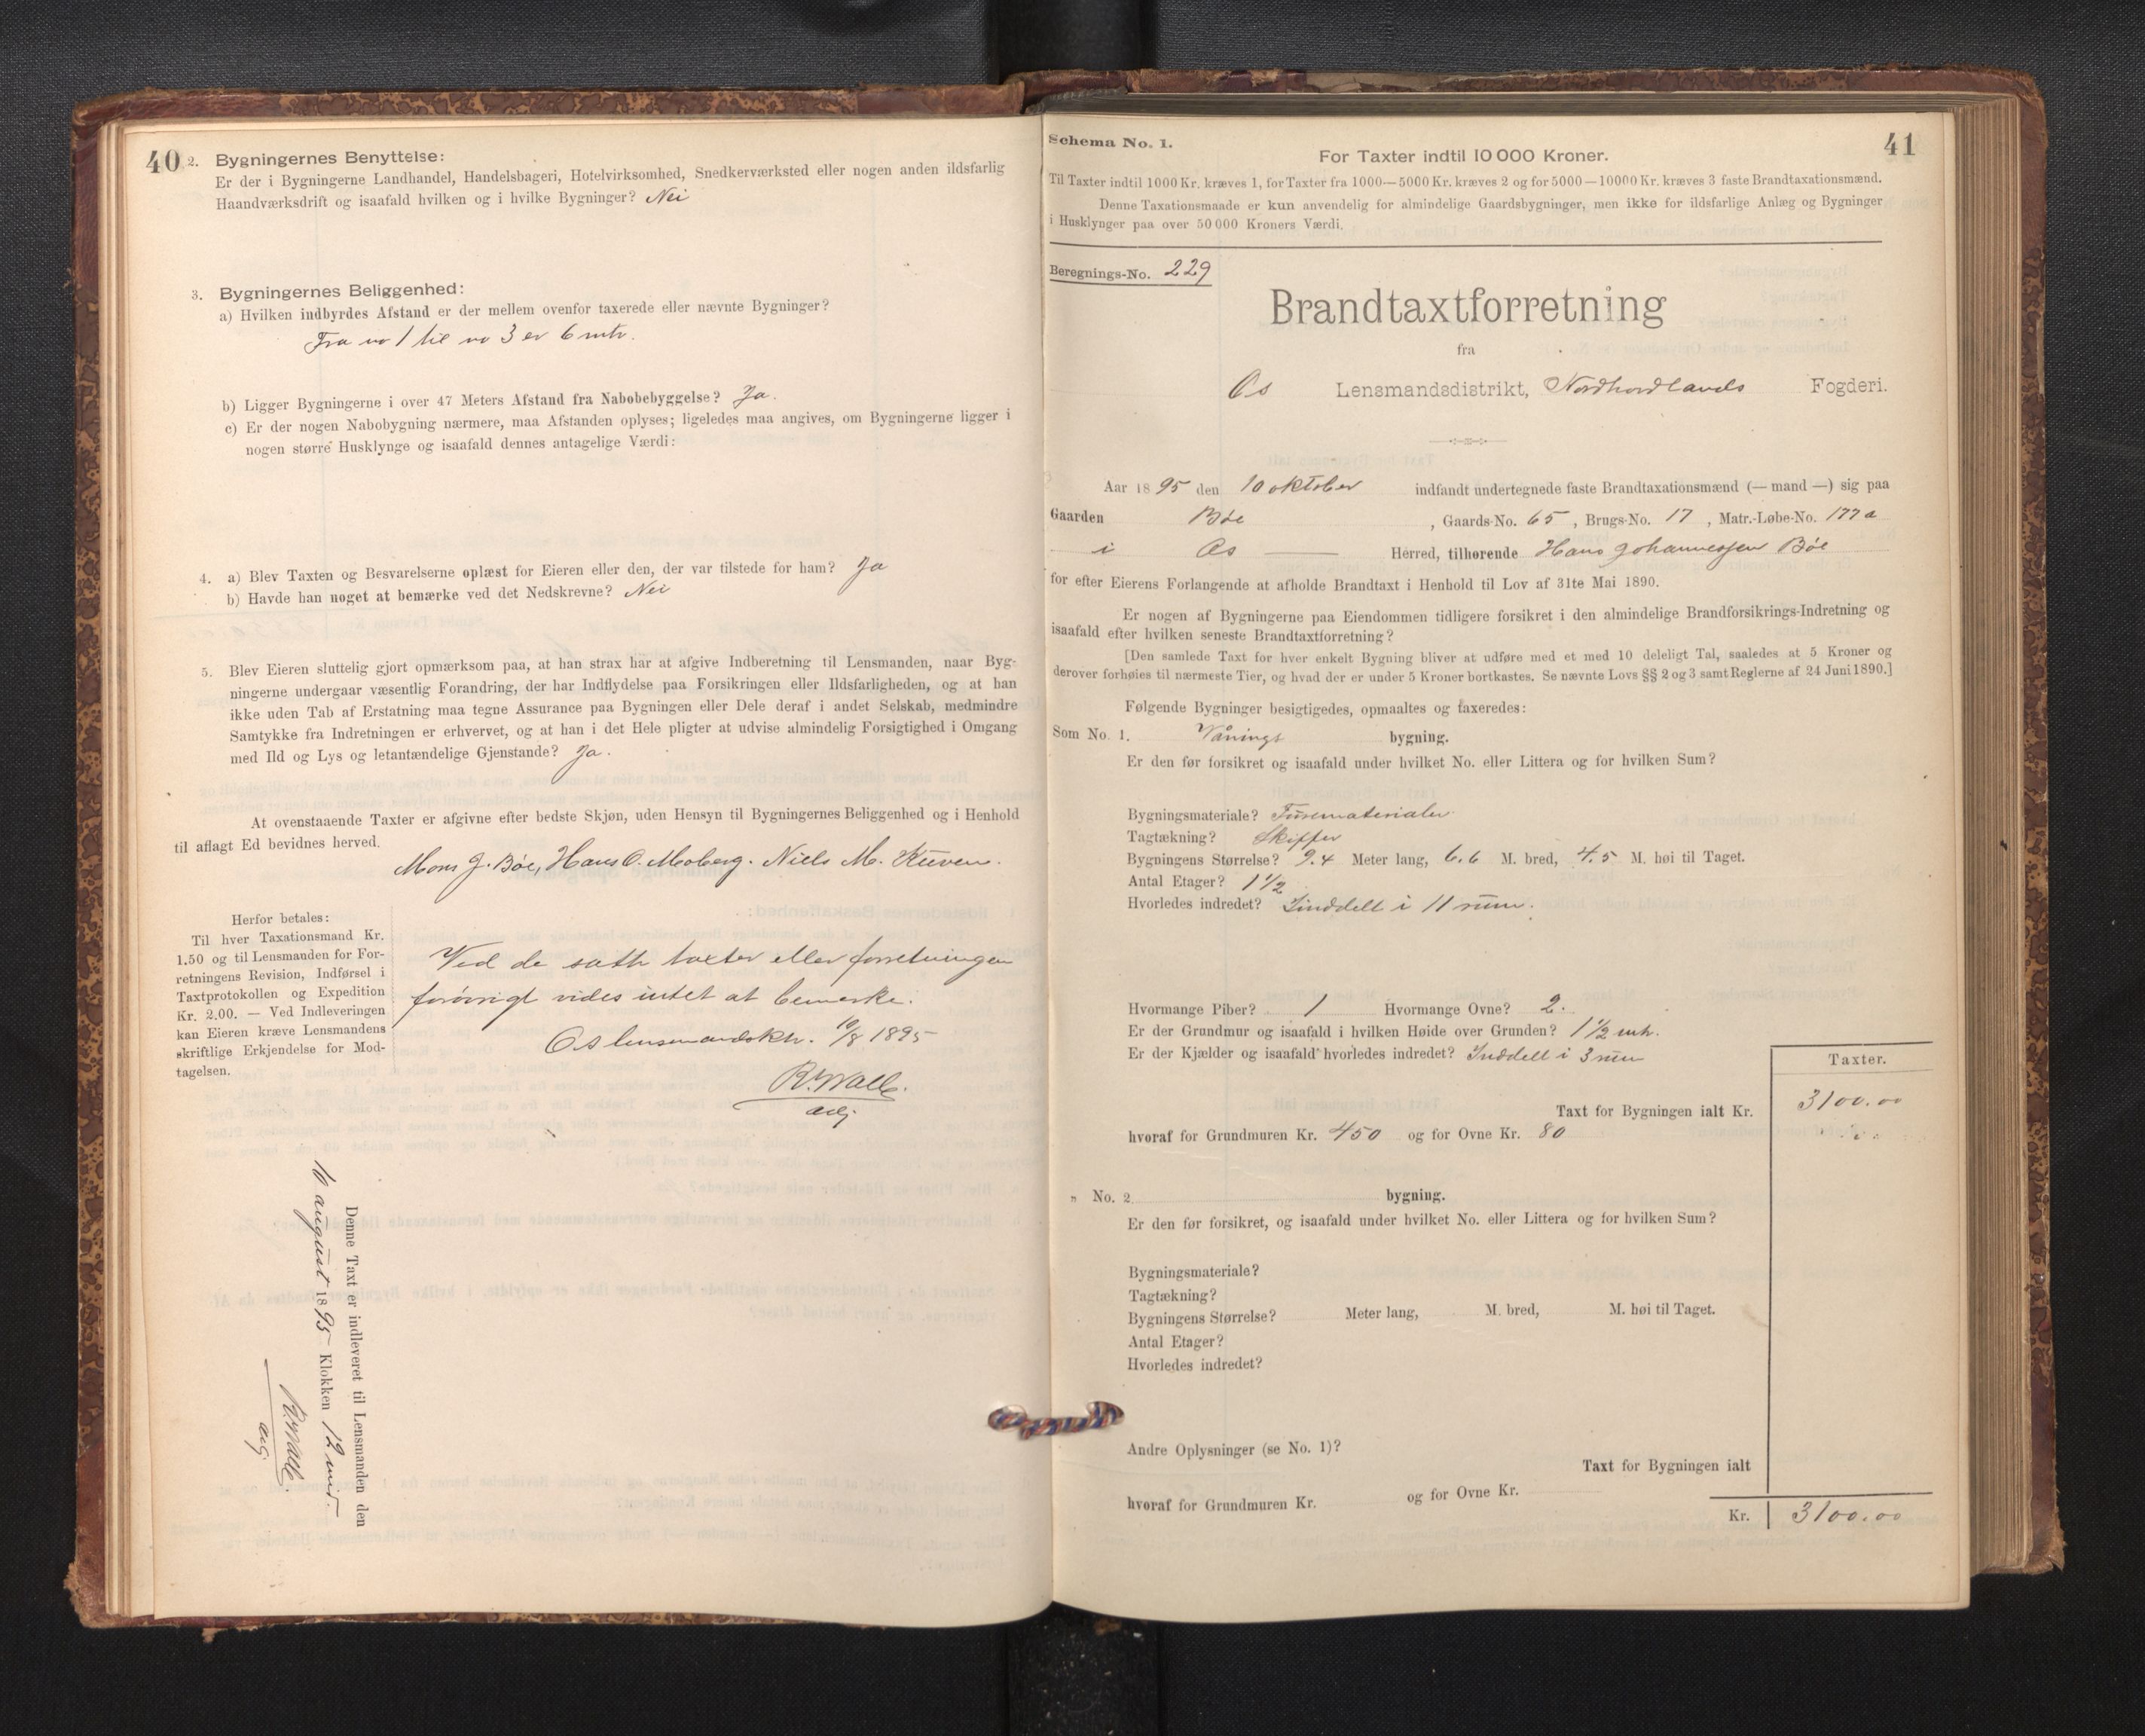 40
2. Bygningernes Benyttelse:
Er der i Bygningerne Landhandel, Handelsbageri, Hotelvirksomhed, Snedkerværksted eller nogen anden ildsfarlig
Haandværksdrift og isaafald hvilken og i hvilke Bygninger? Nei
3. Bygningernes Beliggenhed:
a) Hvilken indbyrdes Afstand er der mellem ovenfor taxerede eller nævnte Bygninger?
Fra no 1 til no 3 er 6 mtr.
b) Ligger Bygningerne i over 47 Meters Afstand fra Nabobebyggelse? Ja.
c) Er der nogen Nabobygning nærmere, maa Afstanden oplyses; ligeledes maa angives, om Bygningerne ligger i
nogen større Husklynge og isaafald dennes antagelige Værdi:
4. a) Blev Taxten og Besvarelserne oplæst for Eieren eller den, der var tilstede for ham? Ja
b) Havde han noget at bemærke ved det Nedskrevne? Nei
5. Blev Eieren sluttelig gjort opmærksom paa, at han strax har at afgive Indberetning til Lensmanden, naar Byg-
ningerne undergaar væsentlig Forandring, der har Indflydelse paa Forsikringen eller Ildsfarligheden, og at han
ikke uden Tab af Erstatning maa tegne Assurance paa Bygningen eller Dele deraf i andet Selskab, medmindre
Samtykke fra Indretningen er erhvervet, og at han i det Hele pligter at udvise almindelig Forsigtighed i Omgang
med Ild og Lys og letantændelige Gjenstande? Ja.
At ovenstaaende Taxter er afgivne efter bedste Skjøn, uden Hensyn til Bygningernes Beliggenhed og i Henhold
til aflagt Ed bevidnes herved.
Mons J. Bøe, Hans O. Moberg. Niels M. Kuven.
Herfor betales:
Til hver Taxationsmand Kr.
1.50 og til Lensmanden for For-
retningens Revision, Indførsel i
Taxtprotokollen og Expedition
Kr. 2.00. — Ved Indleveringen
kan Eieren kræve Lensmandens
skriftlige Erkjendelse for Mod-
tagelsen.
Ved de satte taxter eller forretningen
forøvrigt vides intet at bemerke.
Os lensmandsktr. 10/8 1895
R. Wall.
adj
Denne Taxt er indleveret til Lensmanden den
10 august 1895 Klokken 12 mid.
R. Wall.
adj.
41
Schema No. 1.
For Taxter indtil 10 000 Kroner.
Til Taxter indtil 1000 Kr. kræves 1, for Taxter fra 1000—5000 Kr. kræves 2 og for 5000—10000 Kr. kræves 3 faste Brandtaxationsmænd.
Denne Taxationsmaade er kun anvendelig for almindelige Gaardsbygninger, men ikke for ildsfarlige Anlæg og Bygninger
i Husklynger paa over 50 000 Kroners Værdi.
Beregnings-No. 229
Brandtaxtforretning
fra
Os Lensmandsdistrikt, Nordhordlands Fogderi.
Aar 1895 den 10 oktober indfandt undertegnede faste Brandtaxationsmænd (— mand —) sig paa
Gaarden Bøe, Gaards-No. 65, Brugs-No. 17, Matr.-Løbe-No. 177a
i Os Herred, tilhørende Hans Johannessen Bøe
for efter Eierens Forlangende at afholde Brandtaxt i Henhold til Lov af 31te Mai 1890.
Er nogen af Bygningerne paa Eiendommen tidligere forsikret i den almindelige Brandforsikrings-Indretning og
isaafald efter hvilken seneste Brandtaxtforretning?
[Den samlede Taxt for hver enkelt Bygning bliver at udføre med et med 10 deleligt Tal, saaledes at 5 Kroner og
derover forhøies til nærmeste Tier, og hvad der er under 5 Kroner bortkastes. Se nævnte Lovs §§ 2 og 3 samt Reglerne af 24 Juni 1890.]
Følgende Bygninger besigtigedes, opmaaltes og taxeredes:
Som No. 1. Vånings bygning.
Er den før forsikret og isaafald under hvilket No. eller Littera og for hvilken Sum?
Bygningsmateriale? Furematerialer
Tagtækning? Skiffer
Bygningens Størrelse? 9.4 Meter lang, 6.6 M. bred, 4.5 M. høi til Taget.
Antal Etager? 1 1/2
Hvorledes indredet? Inddelt i 11 rum.
Hvormange Piber? 1 Hvormange Ovne? 2.
Er der Grundmur og isaafald i hvilken Høide over Grunden? 1 1/2 mtr.
Er der Kjælder og isaafald hvorledes indredet? Inddelt i 3 rum
Taxter.
Taxt for Bygningen ialt Kr. 3100.00
hvoraf for Grundmuren Kr. 450 og for Ovne Kr. 80
" No. 2 bygning.
Er den før forsikret, og isaafald under hvilket No. eller Littera og for hvilken Sum?
Bygningsmateriale?
Tagtækning?
Bygningens Størrelse? Meter lang, M. bred, M. høi til Taget.
Antal Etager?
Hvorledes indredet?
Andre Oplysninger (se No. 1)?
Taxt for Bygningen ialt
hvoraf for Grundmuren Kr. og for Ovne Kr.
Kr. 3100.00